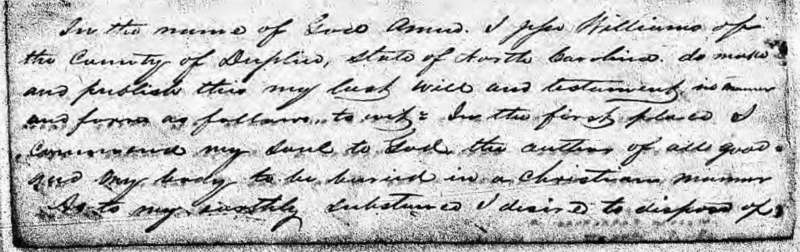 In the name of God Amen. I Jesse Williams of
the County of Duplin, State of North Carolina. do make
and publish this my last will and testament in manner
and form as follows, to wit: In the first place I
commend my soul to God the author of all good
and my body to be buried in a christian manner
As to my earthly substance I desire to dispose of